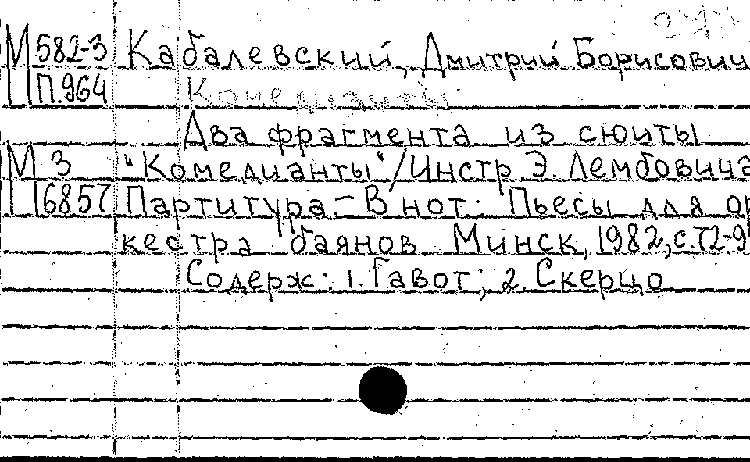 М 582-3 Кабалевский, Дмитрий Борисович
П.964 Комедианты
Два фрагмента из сюиты
М 3 "Комедианты"/Инстр. Э. Лембовича
16857 Партитура – В нот.: Пьесы для ор
кестра баянов. Минск, 1982, с.72-9
Содерж.: 1. Гавот; 2. Скерцо